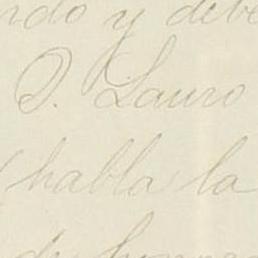 y debe
D. Lauro
(habla la